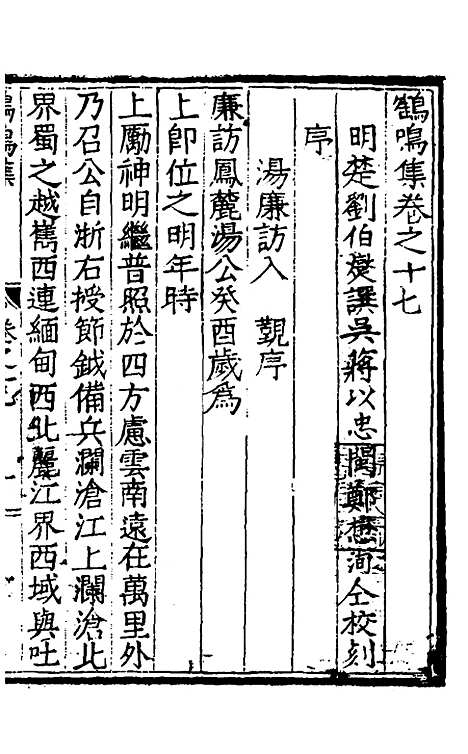 鶴鳴集卷之十七
明楚劉伯燮譔吳蔣以忠閩鄭懋洵仝校刻
序
湯廉訪入　覲序
廉訪鳳麓湯公癸酉歲爲
上卽位之明年時
上勵神明繼普照於四方慮雲南遠在萬里外
乃召公自浙右授節鉞備兵瀾滄江上瀾滄北
界蜀之越嶲西連緬甸西北麗江界西域與吐